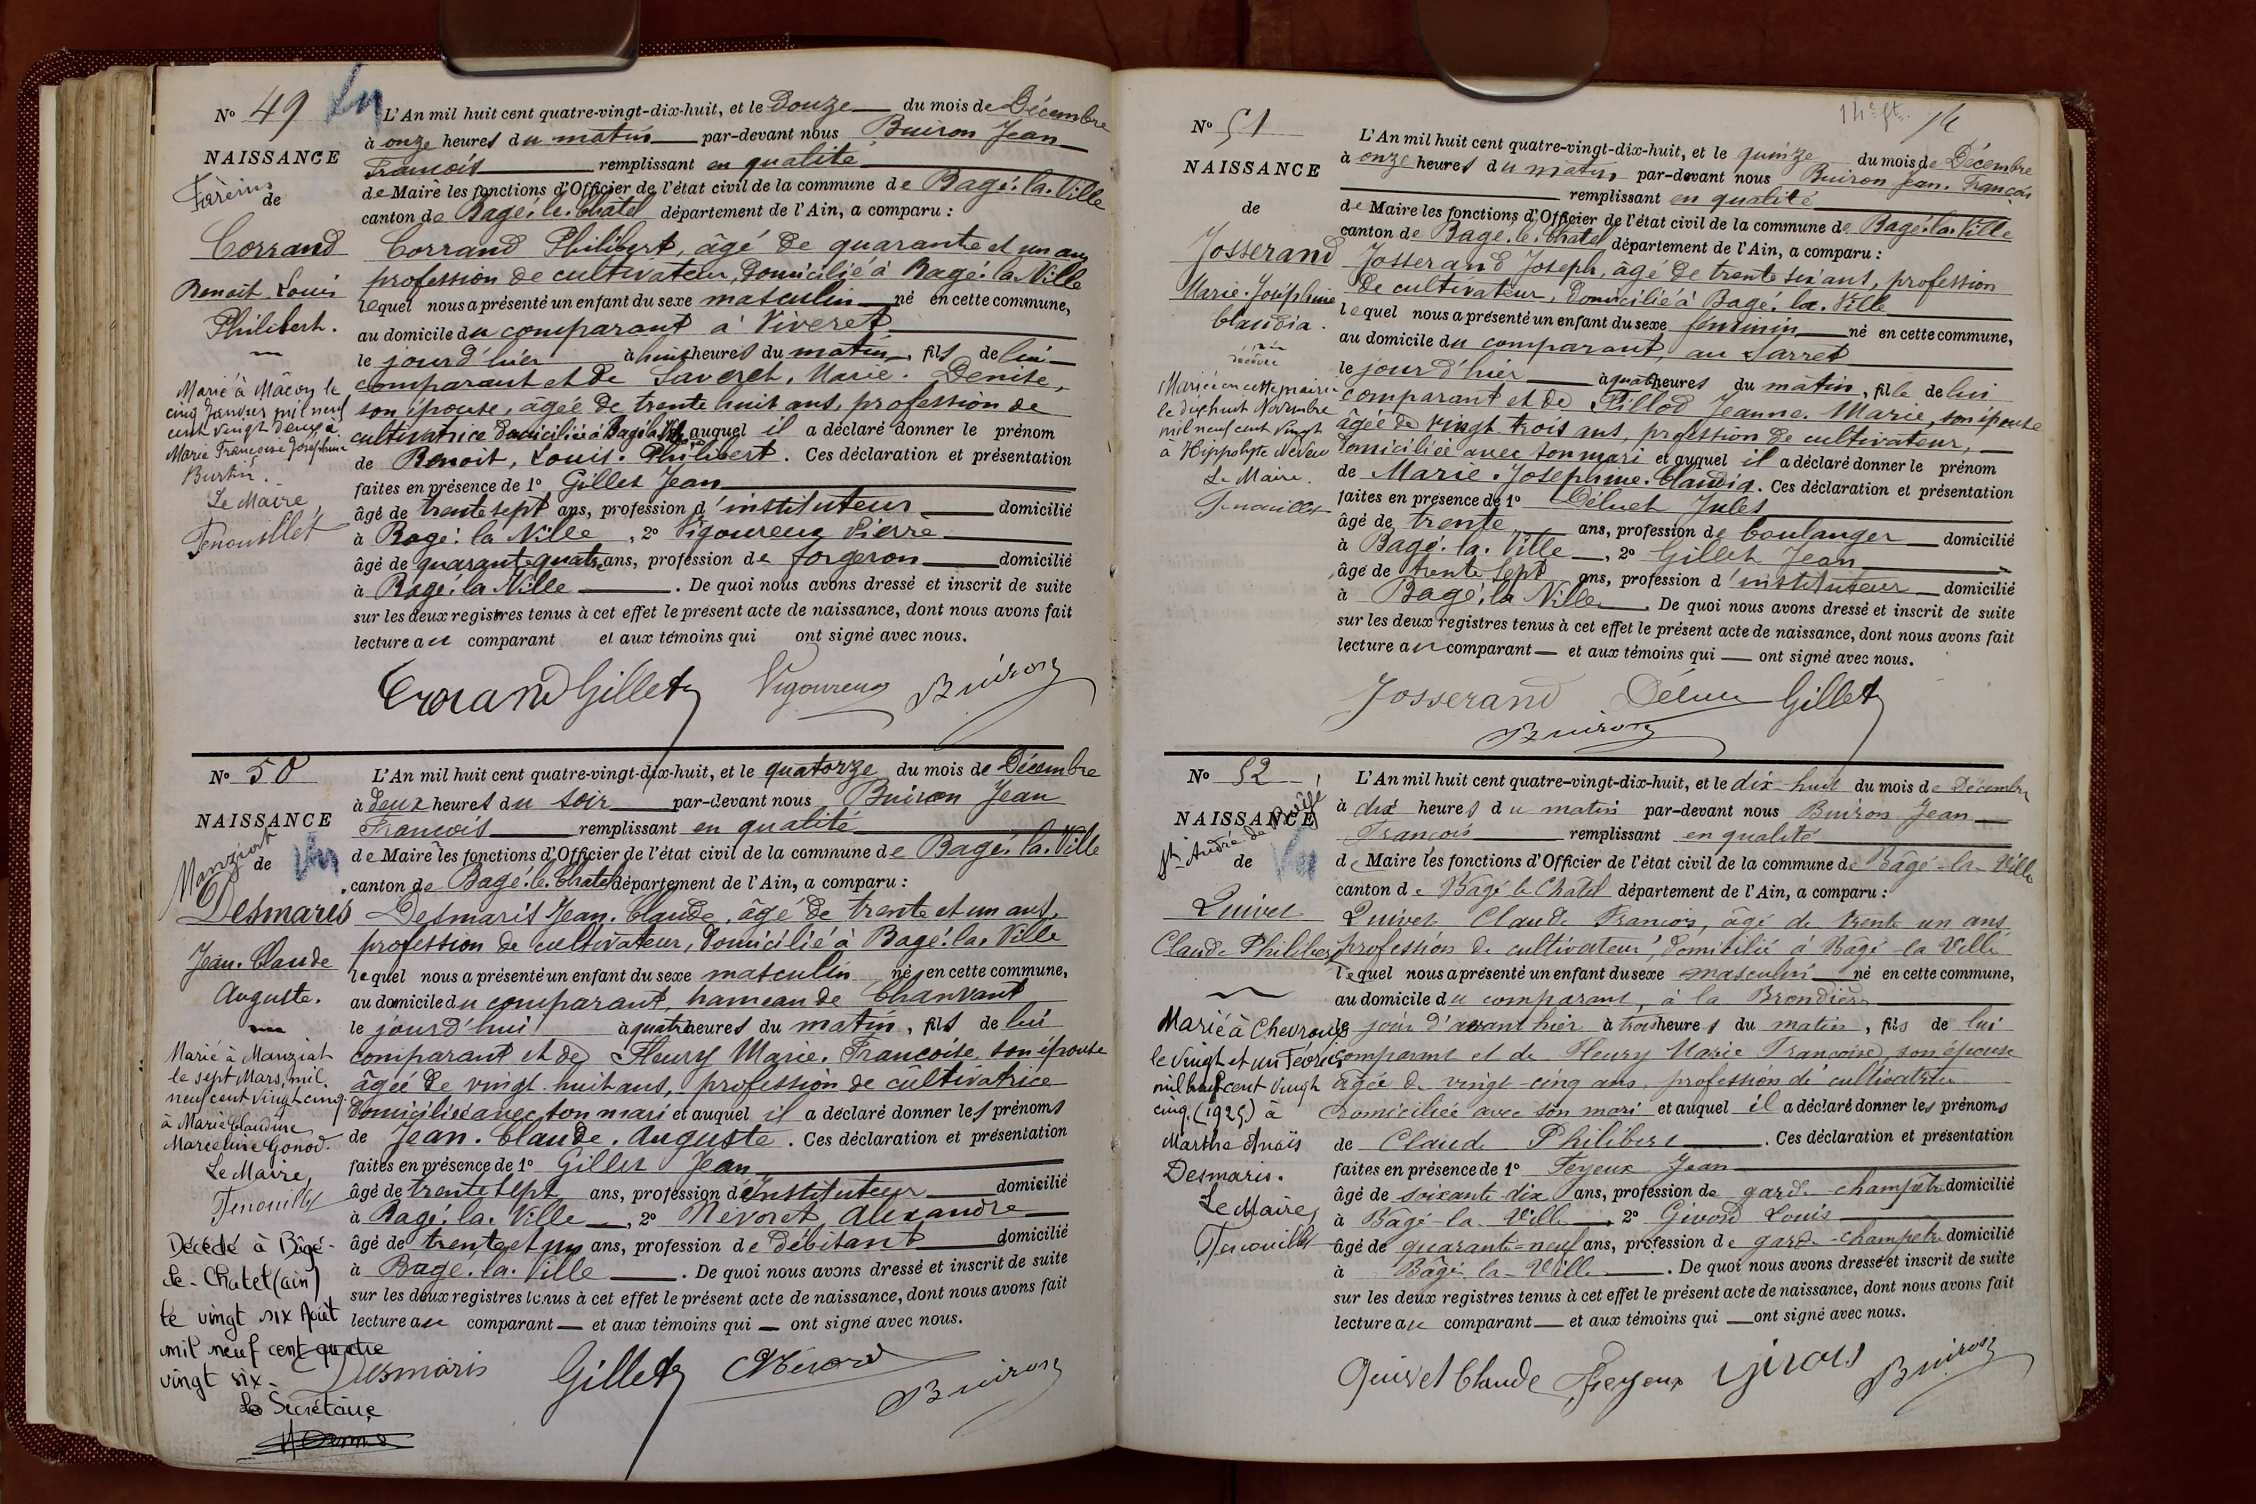 Nº 49
NAISSANCE
Farèins
de
Corrand
Benoit Louis
Philibert.
Marié à Mâcon le
cinq Janvier mil neuf
cent vingt deux à
Marie Françoise Joséphine
Burtin.
Le Maire,
Fenouillet
L'An mil huit cent quatre-vingt-dix-huit, et le Douze du mois de Décembre
à onze heures du matin par-devant nous Buiron Jean
François remplissant en qualité
de Maire les fonctions d'Officier de l'état civil de la commune de Bagé-la-Ville
canton de Bagé-le-Chatel département de l'Ain, a comparu :
Corrand Philibert, âgé de quarante et un ans
profession de cultivateur, domicilié à Bagé-la-Ville
lequel nous a présenté un enfant du sexe masculin né en cette commune,
au domicile du comparant à Viveret
le jour d'hier à huit heures du matin, fils de lui
comparant et de Saveret, Marie. Denise,
son épouse, âgée de trente huit ans, profession de
cultivatrice domiciliée à Bagé la Ville auquel il a déclaré donner le prénom
de Benoit, Louis. Philibert. Ces déclaration et présentation
faites en présence de 1º Gillet Jean
âgé de trente sept ans, profession d'instituteur domicilié
à Bagé-la Ville, 2º Vigoureux Pierre
âgé de quarante quatre ans, profession de forgeron domicilié
à Bagé-la Ville. De quoi nous avons dressé et inscrit de suite
sur les deux registres tenus à cet effet le présent acte de naissance, dont nous avons fait
lecture au comparant et aux témoins qui ont signé avec nous.
Corrand Gillet Vigoureux Buiron
Nº 50
NAISSANCE
Manziat
de
Desmaris
Jean. Claude
Auguste.
Marié à Manziat
le sept Mars, mil
neuf cent vingt cinq
à Marie Claudine
Marceline Gonod.
Le Maire,
Fenouillet
Décédé à Bâgé-
le-Chatel (ain)
le vingt six Août
mil neuf cent quatre
vingt six.
Le Secrétaire
L'An mil huit cent quatre-vingt-dix-huit, et le quatorze du mois de Décembre
à deux heures du soir par-devant nous Buiron Jean
François remplissant en qualité
de Maire les fonctions d'Officier de l'état civil de la commune de Bagé-la-Ville
canton de Bagé-le-Chatel département de l'Ain, a comparu :
Desmaris Jean. Claude, âgé de trente et un ans,
profession de cultivateur, domicilié à Bagé-la-Ville
lequel nous a présenté un enfant du sexe masculin né en cette commune,
au domicile du comparant, hameau de Chanvant
le jour d'hui à quatre heures du matin, fils de lui
comparant et de Fleury Marie. Françoise, son épouse
âgée de vingt huit ans, profession de cultivatrice
domiciliée avec son mari et auquel il a déclaré donner les prénoms
de Jean. Claude. Auguste. Ces déclaration et présentation
faites en présence de 1º Gillet Jean
âgé de trente sept ans, profession d'instituteur domicilié
à Bagé-la-Ville, 2º Névoret Alexandre
âgé de trente et un ans, profession de débitant domicilié
à Bagé-la-Ville. De quoi nous avons dressé et inscrit de suite
sur les deux registres tenus à cet effet le présent acte de naissance, dont nous avons fait
lecture au comparant et aux témoins qui ont signé avec nous.
Desmaris Gillet Buiron
14e ft. 14
Nº 51
NAISSANCE
de
Josserand
Marie-Joséphine
Claudia.
Mariée en cette mairie
le dix huit Novembre
mil neuf cent vingt
à Hippolyte Neveu
Le Maire.
Fenouillet
L'An mil huit cent quatre-vingt-dix-huit, et le quinze du mois de Décembre
à onze heures du matin par-devant nous Buiron Jean. François
remplissant en qualité
de Maire les fonctions d'Officier de l'état civil de la commune de Bagé-la-Ville
canton de Bagé-le-Chatel département de l'Ain, a comparu :
Josserand Joseph, âgé de trente six ans, profession
de cultivateur, domicilié à Bagé-la-Ville
lequel nous a présenté un enfant du sexe féminin né en cette commune,
au domicile du comparant, au Sarret
le jour d'hier à quatre heures du matin, fille de lui
comparant et de Pillod Jeanne. Marie, son épouse
âgée de vingt trois ans, profession de cultivateur,
domiciliée avec son mari et auquel il a déclaré donner le prénom
de Marie. Joséphine. Claudia. Ces déclaration et présentation
faites en présence de 1º Déluet Jules
âgé de trente ans, profession de boulanger domicilié
à Bagé-la-Ville, 2º Gillet Jean
âgé de trente sept ans, profession d'instituteur domicilié
à Bagé, la Ville. De quoi nous avons dressé et inscrit de suite
sur les deux registres tenus à cet effet le présent acte de naissance, dont nous avons fait
lecture au comparant et aux témoins qui ont signé avec nous.
Josserand Gillet
Buiron
Nº 52
NAISSANCE
St André de Bâgé
de
Quivet
Claude Philibert
Marié à Chevroux
le vingt et un Février
mil neuf cent vingt
cinq (1925) à
Marthe Anaïs
Desmaris.
Le Maire,
Fenouillet
L'An mil huit cent quatre-vingt-dix-huit, et le dix-huit du mois de Décembre
à dix heures du matin par-devant nous Buiron Jean
François remplissant en qualité
de Maire les fonctions d'Officier de l'état civil de la commune de Bâgé-la-Ville
canton de Bâgé le Chatel département de l'Ain, a comparu :
Quivet Claude François, âgé de trente un ans,
profession de cultivateur, domicilié à Bâgé-la Ville
lequel nous a présenté un enfant du sexe masculin né en cette commune,
au domicile du comparant, à la Brondière
le jour d'avant hier à trois heures du matin, fils de lui
comparant et de Fleury Marie Françoise, son épouse
âgée de vingt-cinq ans, profession de cultivatrice
domiciliée avec son mari et auquel il a déclaré donner les prénoms
de Claude Philibert. Ces déclaration et présentation
faites en présence de 1º Feyeux Jean
âgé de soixante dix ans, profession de garde-champêtre domicilié
à Bâgé-la-Ville, 2º Givord Louis
âgé de quarante-neuf ans, profession de garde-champêtre domicilié
à Bâgé-la-Ville. De quoi nous avons dressé et inscrit de suite
sur les deux registres tenus à cet effet le présent acte de naissance, dont nous avons fait
lecture au comparant et aux témoins qui ont signé avec nous.
Quivet Claude Feyeux Buiron